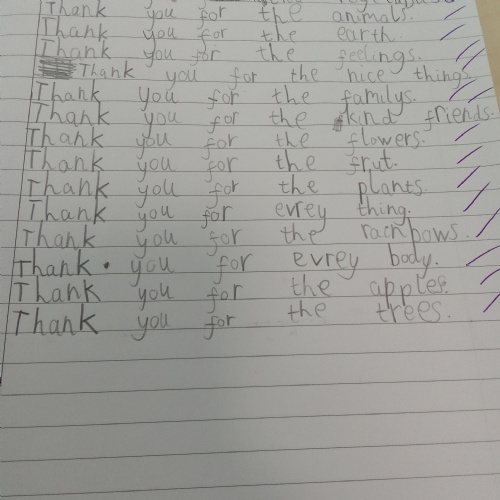 Thank you for the animals.
Thank you for the earth.
Thank you for the feelings.
Thank you for the nice things.
Thank you for the familys.
Thank you for the kind friends.
Thank you for the flowers.
Thank you for the frut.
Thank you for the plants.
Thank you for evrey thing.
Thank you for the rachbows.
Thank. you for evrey body.
Thank you for the apples.
Thank you for the trees.